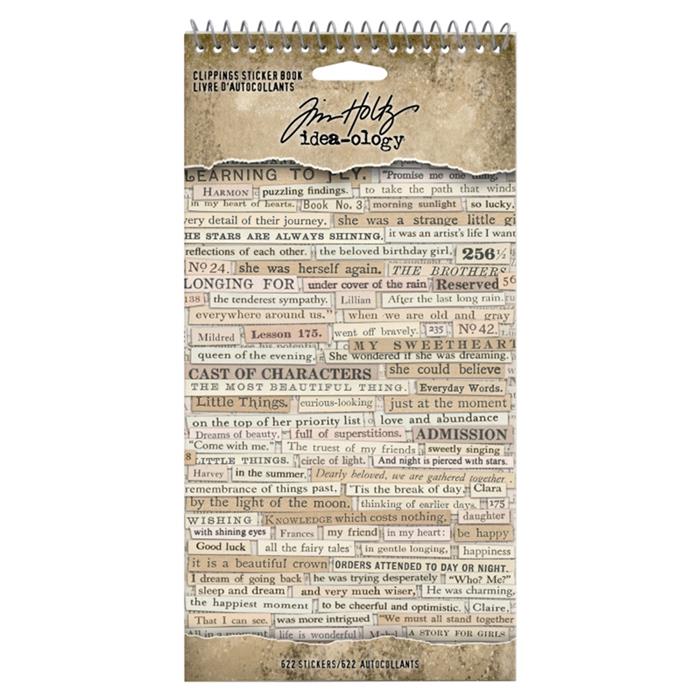 CLIPPINGS STICKER BOOK
LIVRE D'AUTOCOLLANTS
Tim Holtz
idea-ology
LEARNING TO FLY. "Promise me one thing,
HARMON puzzling findings. to take the path that winds
in my heart of hearts. Book No. 3 morning sunlight so lucky,
very detail of their journey. she was a strange little gi
HE STARS ARE ALWAYS SHINING. it was an artist's life I want
reflections of each other. the beloved birthday girl, 256½
No 24. she was herself again. THE BROTHERS
LONGING FOR under cover of the rain Reserved 56
138 the tenderest sympathy. Lillian After the last long rain.
everywhere around us." when we are old and gray
Mildred Lesson 175. went off bravely. 235 No 42.
MY SWEETHEART
queen of the evening. She wondered if she was dreaming.
CAST OF CHARACTERS she could believe
THE MOST BEAUTIFUL THING. Everyday Words.
Little Things. curious-looking just at the moment
on the top of her priority list love and abundance
Dreams of beauty, full of superstitions. ADMISSION
"Come with me." The truest of my friends sweetly singing
8 LITTLE THINGS. circle of light. And night is pierced with stars.
Harvey in the summer, Dearly beloved, we are gathered together
remembrance of things past. 'Tis the break of day, Clara
by the light of the moon. thinking of earlier days. 175
WISHING KNOWLEDGE which costs nothing. daughter
with shining eyes Frances my friend in my heart: be happy
Good luck all the fairy tales in gentle longing, happiness
it is a beautiful crown ORDERS ATTENDED TO DAY OR NIGHT.
I dream of going back he was trying desperately "Who? Me?"
sleep and dream and very much wiser, He was charming,
the happiest moment to be cheerful and optimistic. Claire,
That I can see. was more intrigued "We must all stand together
All in a moment life is wonderful Mabel A STORY FOR GIRLS
622 STICKERS/622 AUTOCOLLANTS